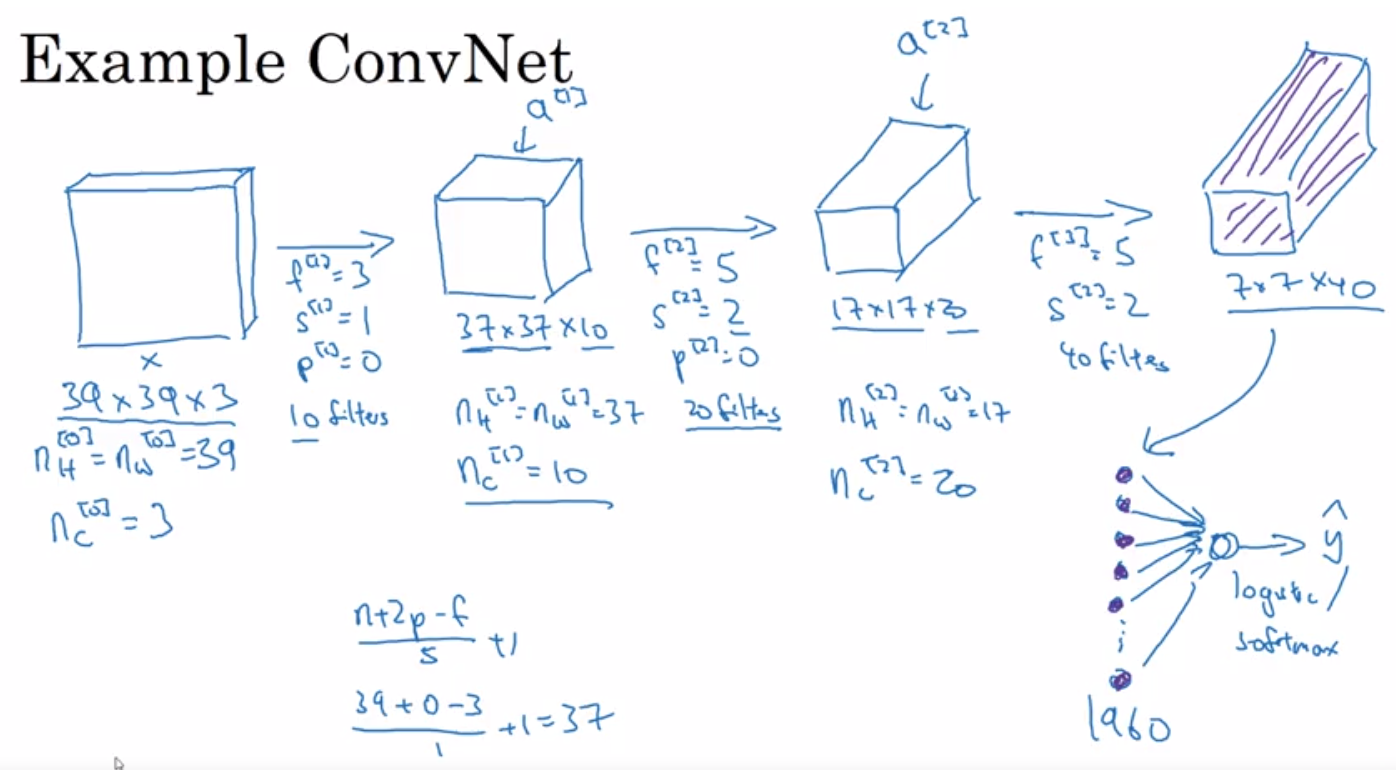 Example ConvNet
a^[1]
a^[2]
x
39×39×3
n_H^[0] = n_W^[0] = 39
n_C^[0] = 3
f^[1] = 3
s^[1] = 1
p^[1] = 0
10 filters
37×37×10
n_H^[1] = n_W^[1] = 37
n_C^[1] = 10
f^[2] = 5
s^[2] = 2
p^[2] = 0
20 filters
17×17×20
n_H^[2] = n_W^[2] = 17
n_C^[2] = 20
f^[3] = 5
s^[2] = 2
40 filters
7×7×40
n+2p-f
s
+1
39+0-3
1
+1=37
1960
ŷ
logistic /
softmax